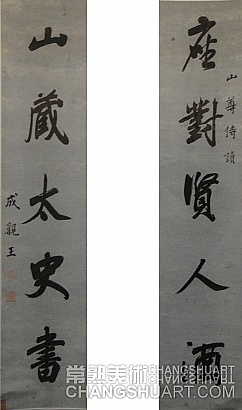 座對賢人酒
山尊侍讀
山藏太史書
成親王
常熟美術
CHANGSHUART
CHANGSHUART.COM